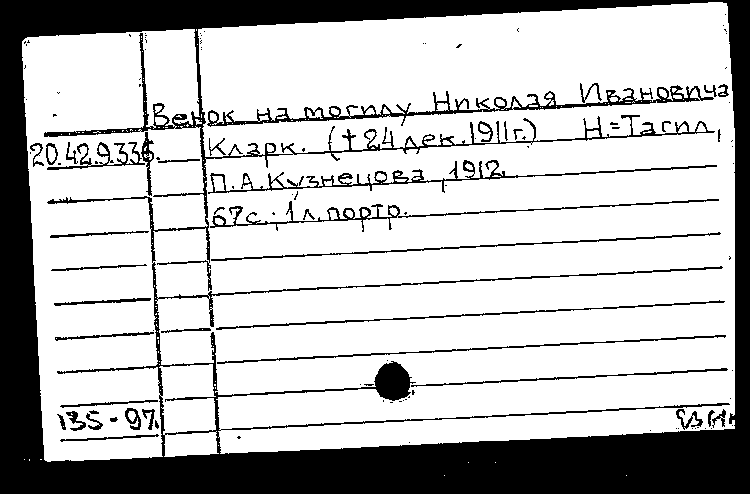 Венок на могилу Николая Ивановича
20.42.9.336. Кларк. (†24 дек. 1911г.) Н.=Тагил,
П.А.Кузнецова, 1912.
67с.; 1л. портр.
135-97